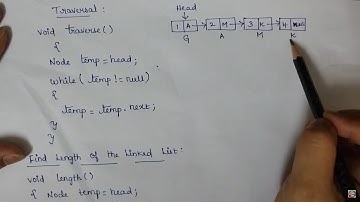 Traversal:
void traverse()
{
Node temp=head;
while (temp != null)
{
temp = temp.next;
}
}
Find Length of the Linked List:
void length()
{ Node temp=head;
Head
1 A 2 M 3 K 4 Null
G A M K